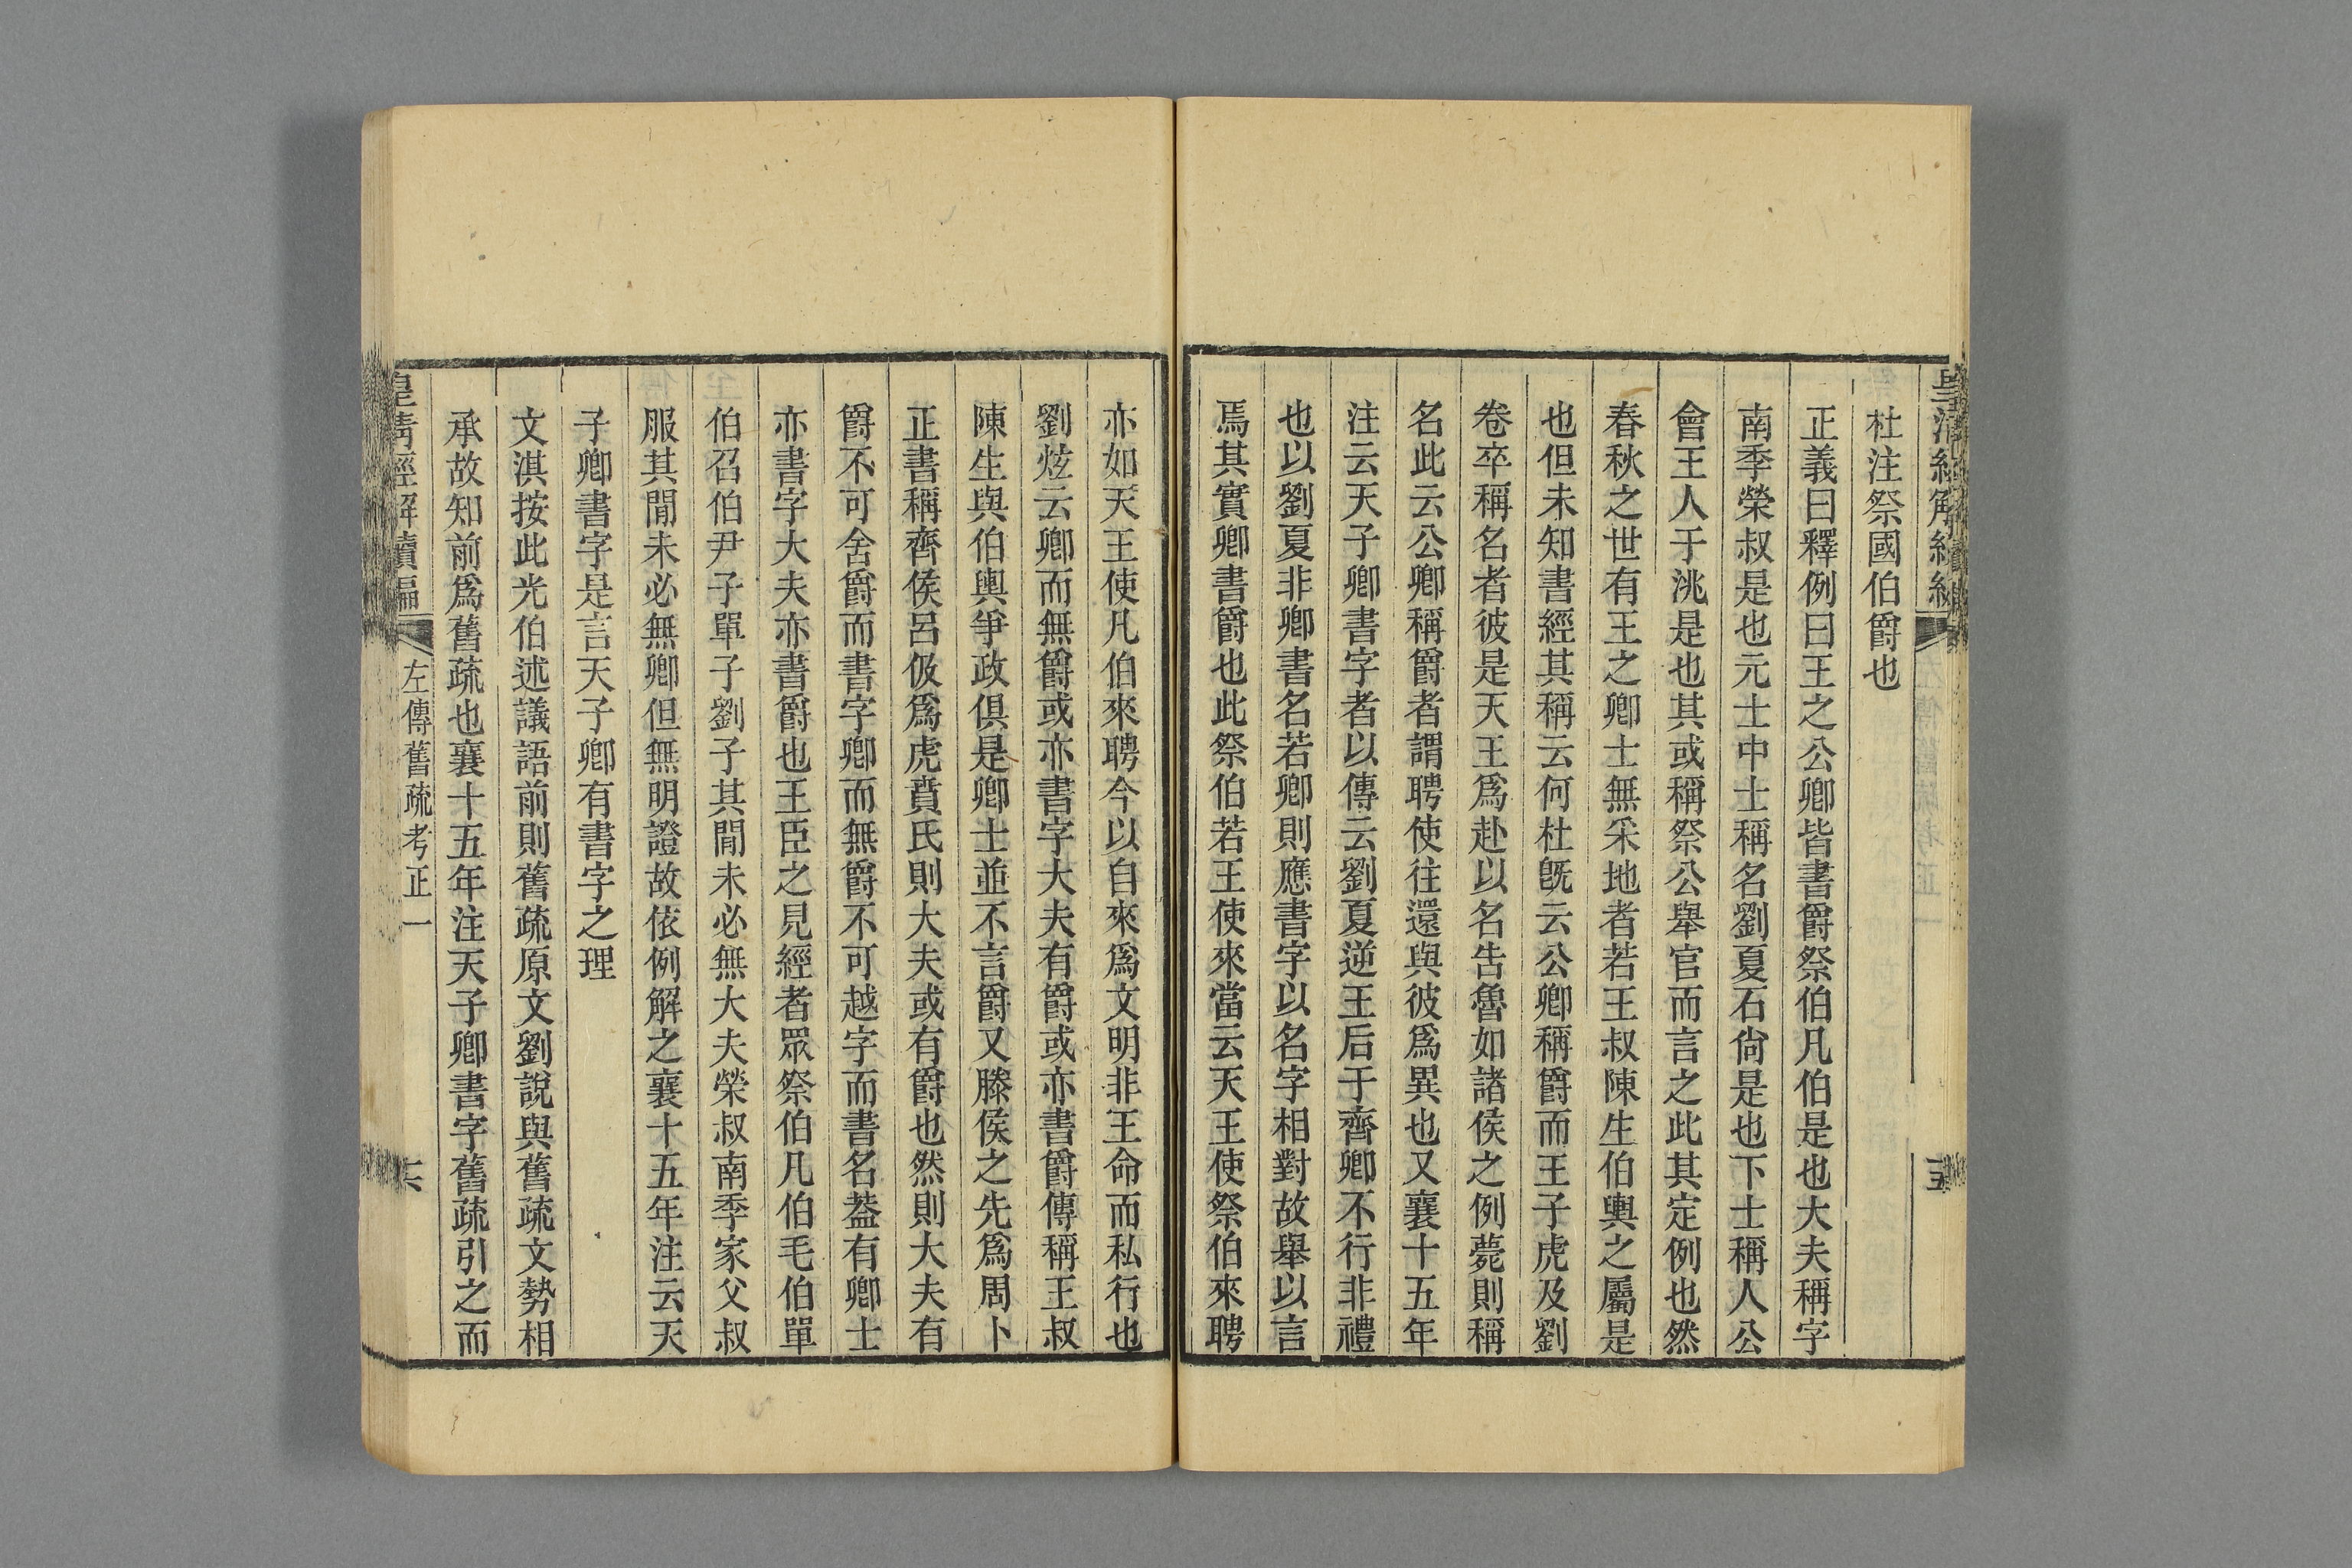 杜注祭國伯爵也
正義曰釋例曰王之公卿皆書爵祭伯凡伯是也大夫稱字
南季榮叔是也元士中士稱名劉夏石尙是也下士稱人公
會王人于洮是也其或稱祭公舉官而言之此其定例也然
春秋之世有王之卿士無采地者若王叔陳生伯輿之屬是
也但未知書經其稱云何杜旣云公卿稱爵而王子虎及劉
卷卒稱名者彼是天王爲赴以名告魯如諸侯之例薨則稱
名此云公卿稱爵者謂聘使往還與彼爲異也又襄十五年
注云天子卿書字者以傳云劉夏逆王后于齊卿不行非禮
也以劉夏非卿書名若卿則應書字以名字相對故舉以言
焉其實卿書爵也此祭伯若王使來當云天王使祭伯來聘
亦如天王使凡伯來聘今以自來爲文明非王命而私行也
劉炫云卿而無爵或亦書字大夫有爵或亦書爵傳稱王叔
陳生與伯輿爭政俱是卿士並不言爵又滕侯之先爲周卜
正書稱齊侯呂伋爲虎賁氏則大夫或有爵也然則大夫有
爵不可舍爵而書字卿而無爵不可越字而書名葢有卿士
亦書字大夫亦書爵也王臣之見經者眾祭伯凡伯毛伯單
伯召伯尹子單子劉子其閒未必無大夫榮叔南季家父叔
服其閒未必無卿但無明證故依例解之襄十五年注云天
子卿書字是言天子卿有書字之理
文淇按此光伯述議語前則舊疏原文劉說與舊疏文勢相
承故知前爲舊疏也襄十五年注天子卿書字舊疏引之而
皇淸經解續編
左傳舊疏考正一